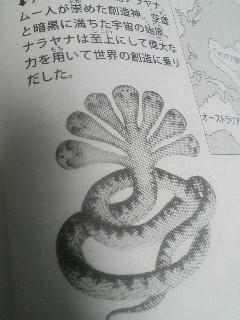 ナラヤナ
ムー人が崇めた創造神。空虚
と暗黒に満ちた宇宙の始原、
ナラヤナは至上にして偉大な
力を用いて世界の創造に乗り
だした。
オーストラリア